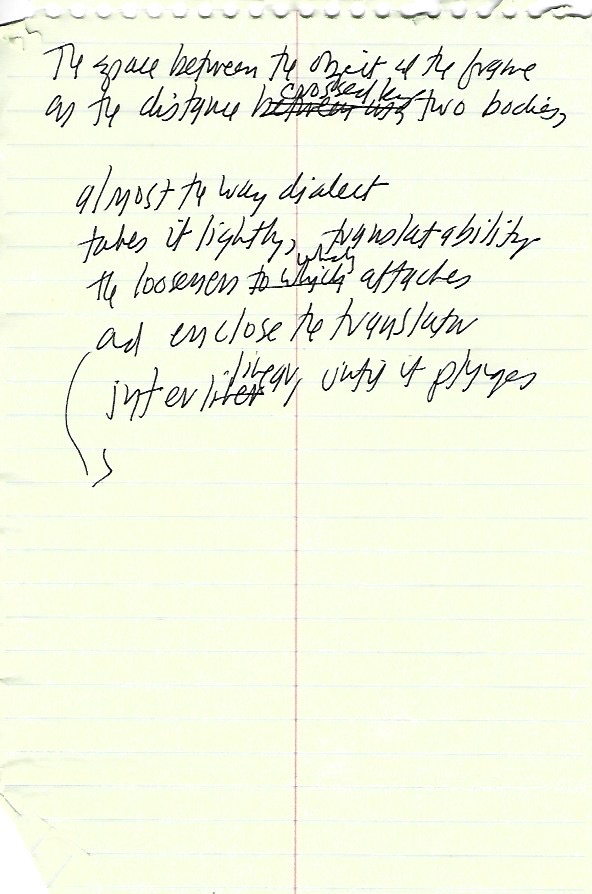 The space between the object & the frame
as the distance crossed by two bodies,
almost the way dialect
takes it lightly, translatability
the looseness which attaches
and enclose the translator
interlinear, until it plunges